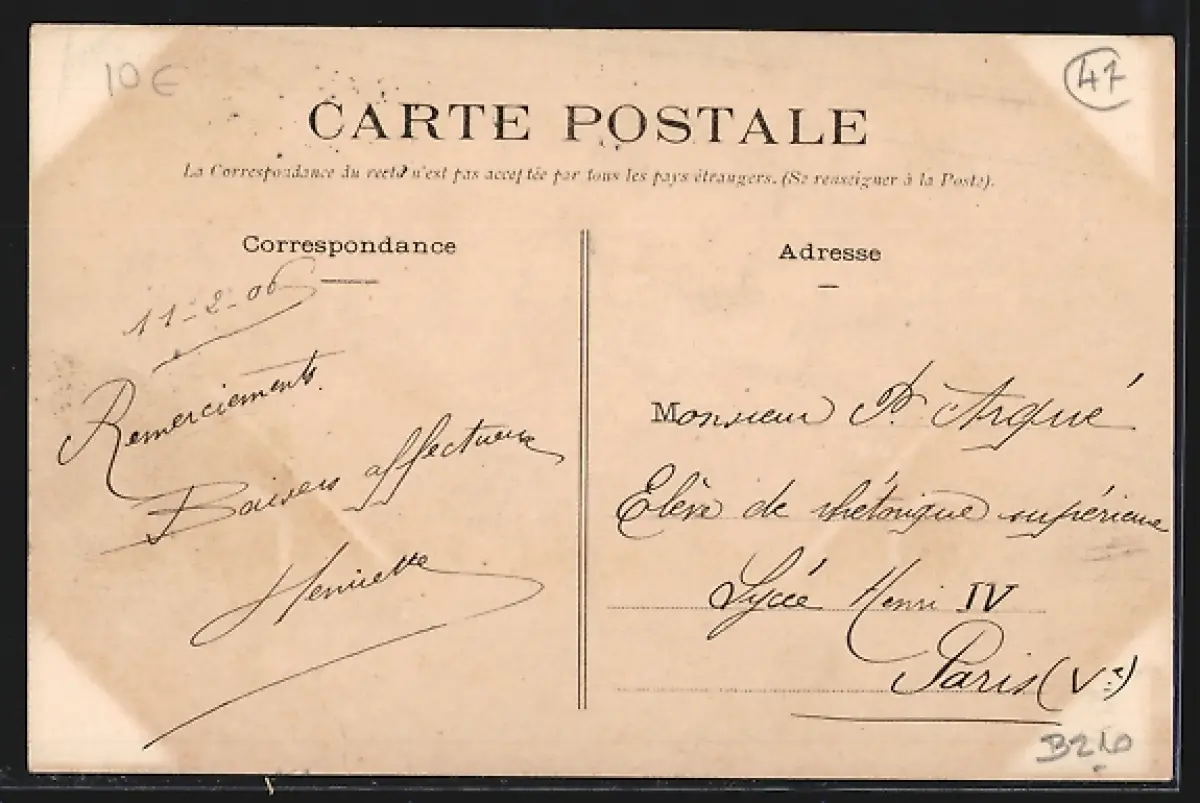 10€
47
CARTE POSTALE
La Correspondance du recto n'est pas acceptée par tous les pays étrangers. (Se renseigner à la Poste).
Correspondance
11-2-06
Remerciements.
Baisers affectueux
Henriette
Adresse
Monsieur P. Arqué
Elève de rhétorique supérieure
Lycée Henri IV
Paris (Ve)